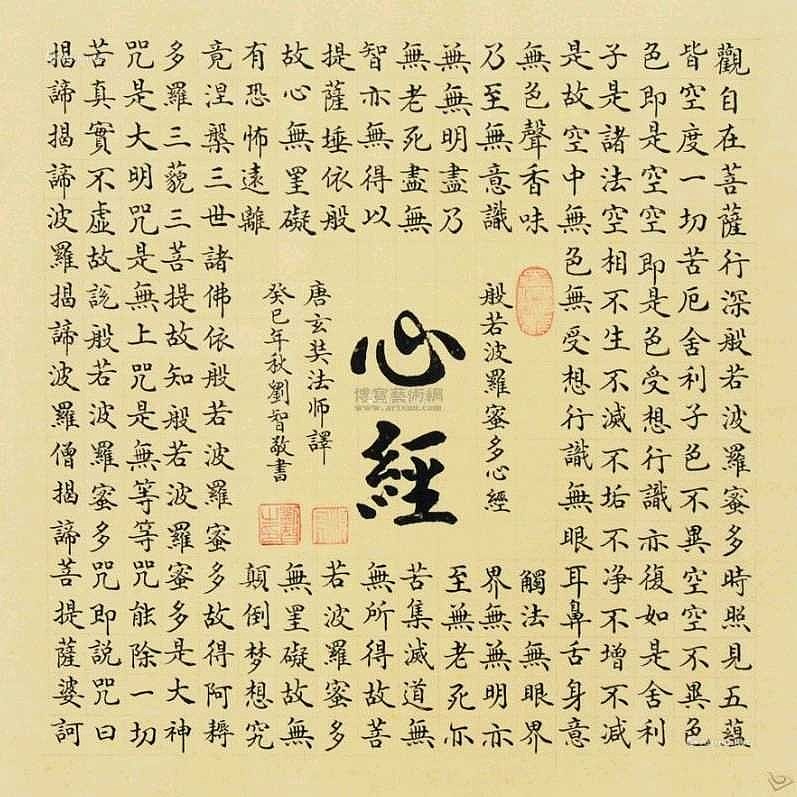 觀自在菩薩行深般若波羅蜜多時照見五蘊
皆空度一切苦厄舍利子色不異空空不異色
色即是空空即是色受想行識亦復如是舍利
子是諸法空相不生不滅不垢不净不增不減
是故空中無色無受想行識無眼耳鼻舌身意
無色聲香味
觸法無眼界
乃至無意識
界無無明亦
無無明盡乃
至無老死亦
無老死盡無
苦集滅道無
智亦無得以
無所得故菩
提薩埵依般
若波羅蜜多
故心無罣礙
無罣礙故無
有恐怖遠離
顛倒梦想究
竟涅槃三世諸佛依般若波羅蜜多故得阿耨
多羅三藐三菩提故知般若波羅蜜多是大神
咒是大明咒是無上咒是無等等咒能除一切
苦真實不虛故説般若波羅蜜多咒即説咒曰
揭諦揭諦波羅揭諦波羅僧揭諦菩提薩婆訶
般若波羅蜜多心經
心經
唐玄奘法师譯
癸巳年秋劉智敬書
博寶藝術網
www.artxun.com